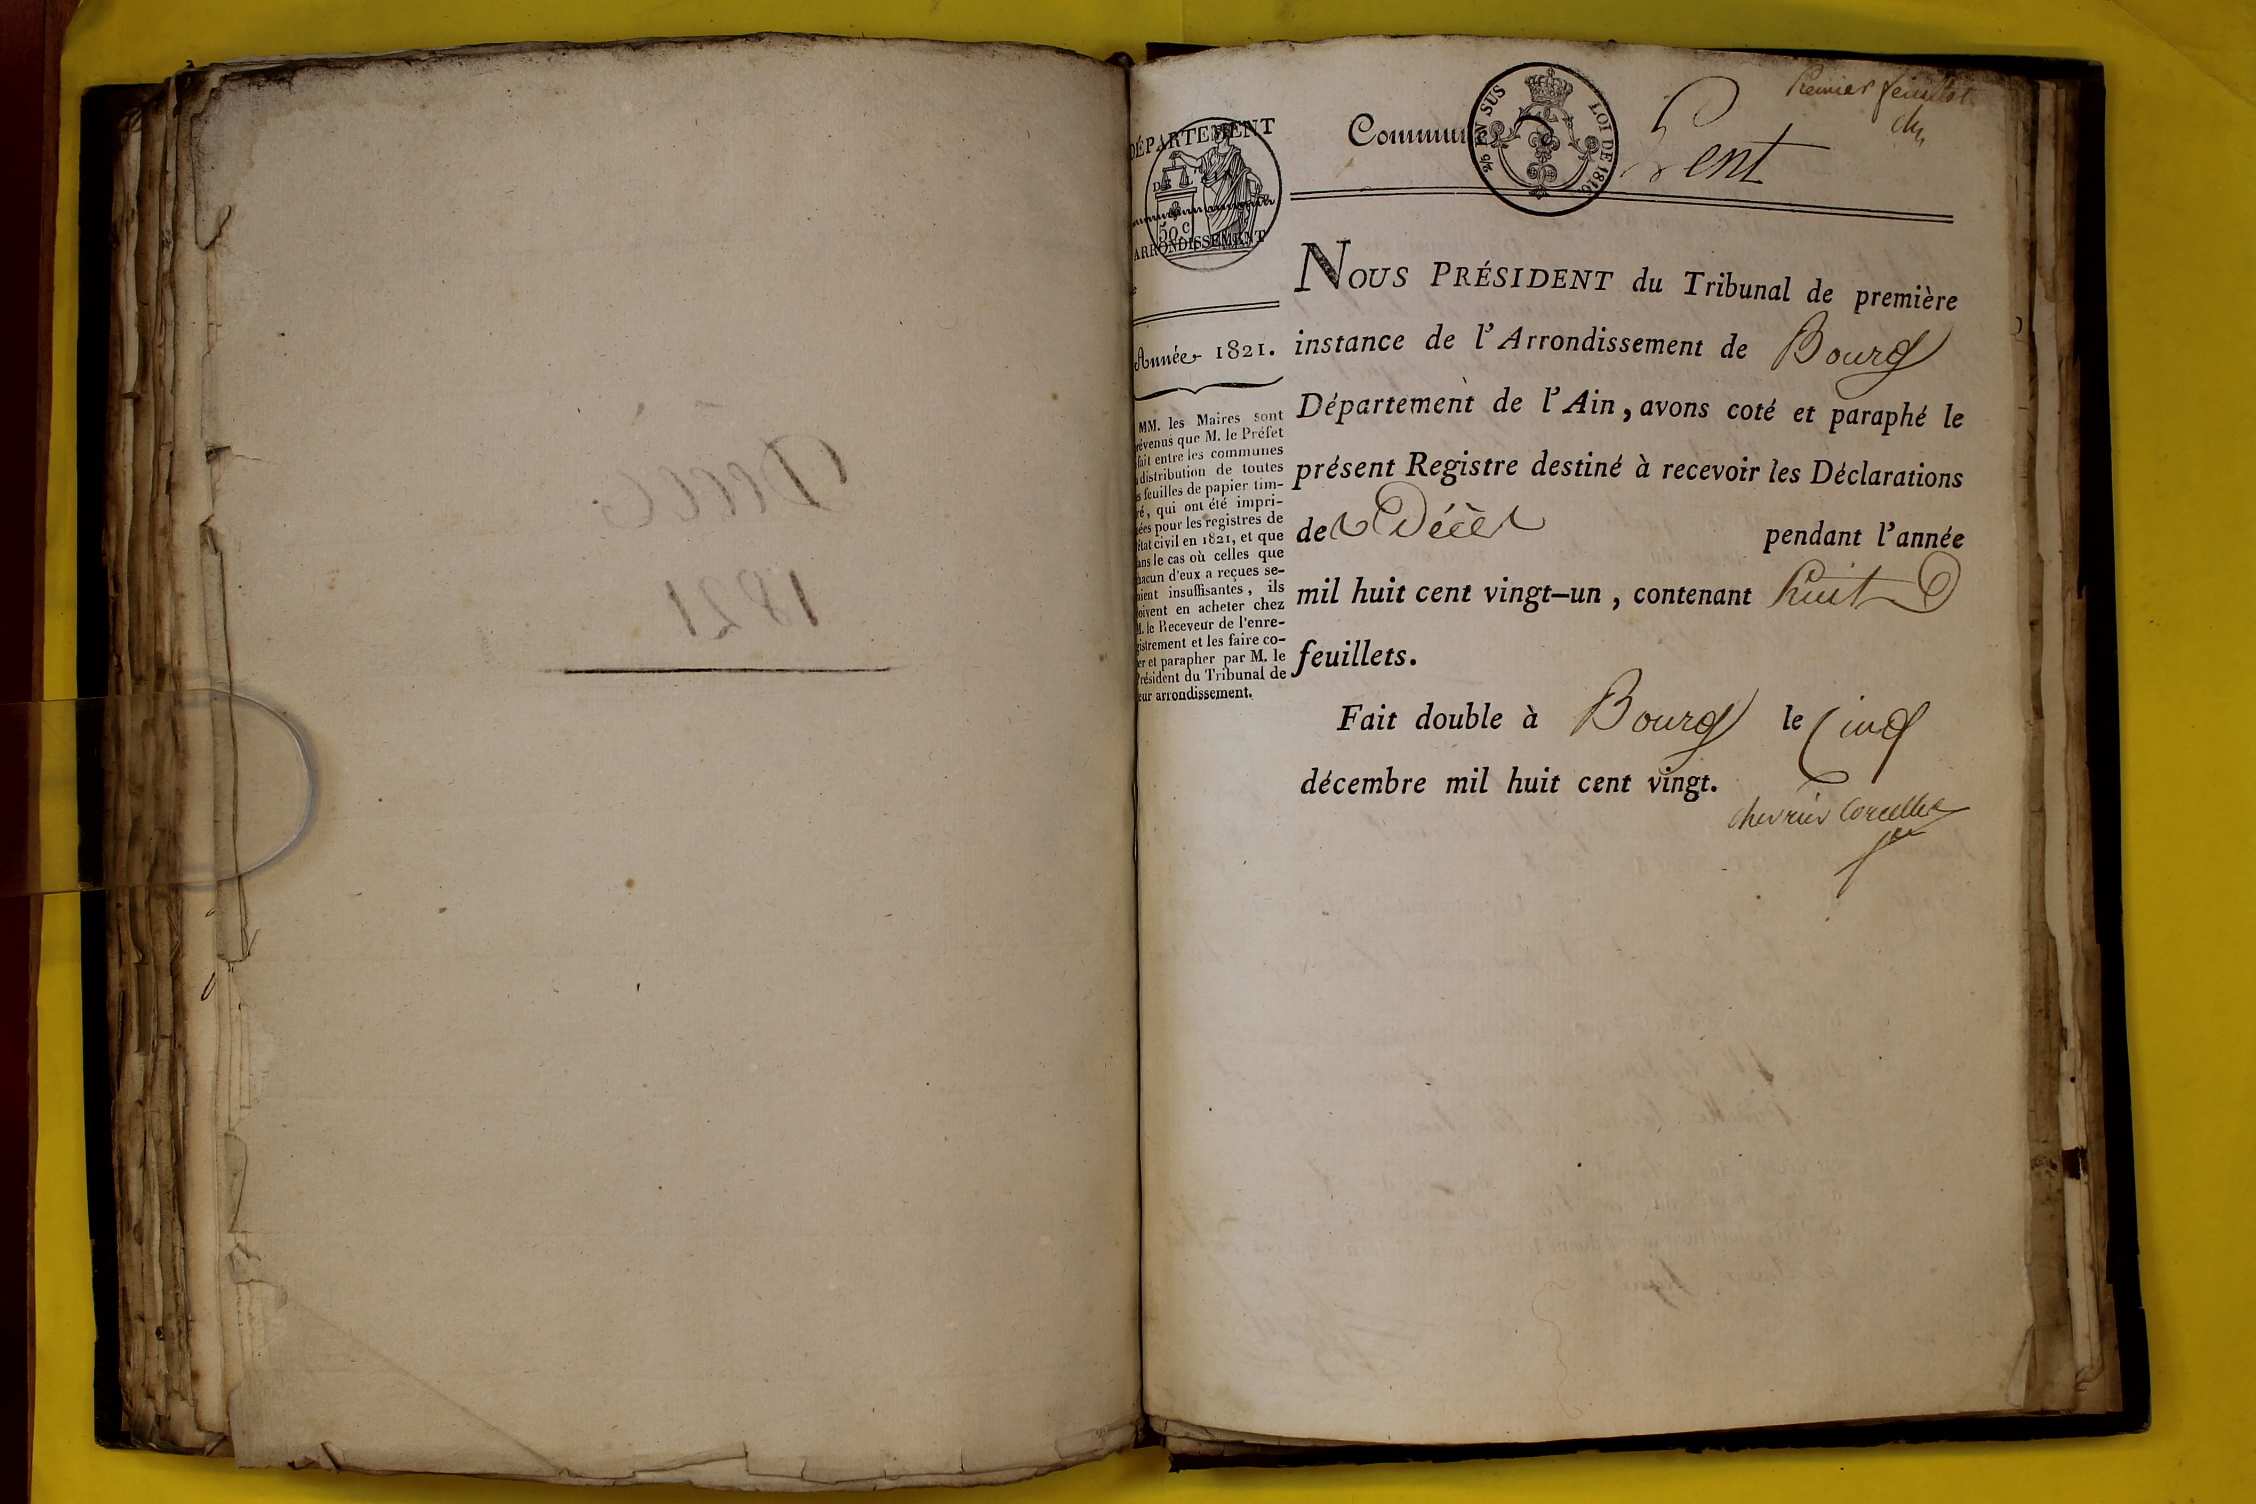 Décès
1821
Premier feuillet
DÉPARTEMENT
DE L'
50 c
ARRONDISSEMENT
Année 1821.
MM. les Maires sont
révenus que M. le Préfet
fait entre les communes
distribution de toutes
s feuilles de papier tim-
ré, qui ont été impri-
ées pour les registres de
état civil en 1821, et que
ans le cas où celles que
hacun d'eux a reçues se-
aient insuffisantes, ils
oivent en acheter chez
M. le Receveur de l'enre-
gistrement et les faire co-
er et parapher par M. le
Président du Tribunal de
eur arrondissement.
Commun Lent
EN SUS LOI DE 1816
NOUS PRÉSIDENT du Tribunal de première
instance de l'Arrondissement de Bourg
Département de l'Ain, avons coté et paraphé le
présent Registre destiné à recevoir les Déclarations
de Décès pendant l'année
mil huit cent vingt-un, contenant huit
feuillets.
Fait double à Bourg le Cinq
décembre mil huit cent vingt.
chevrier Corcelles